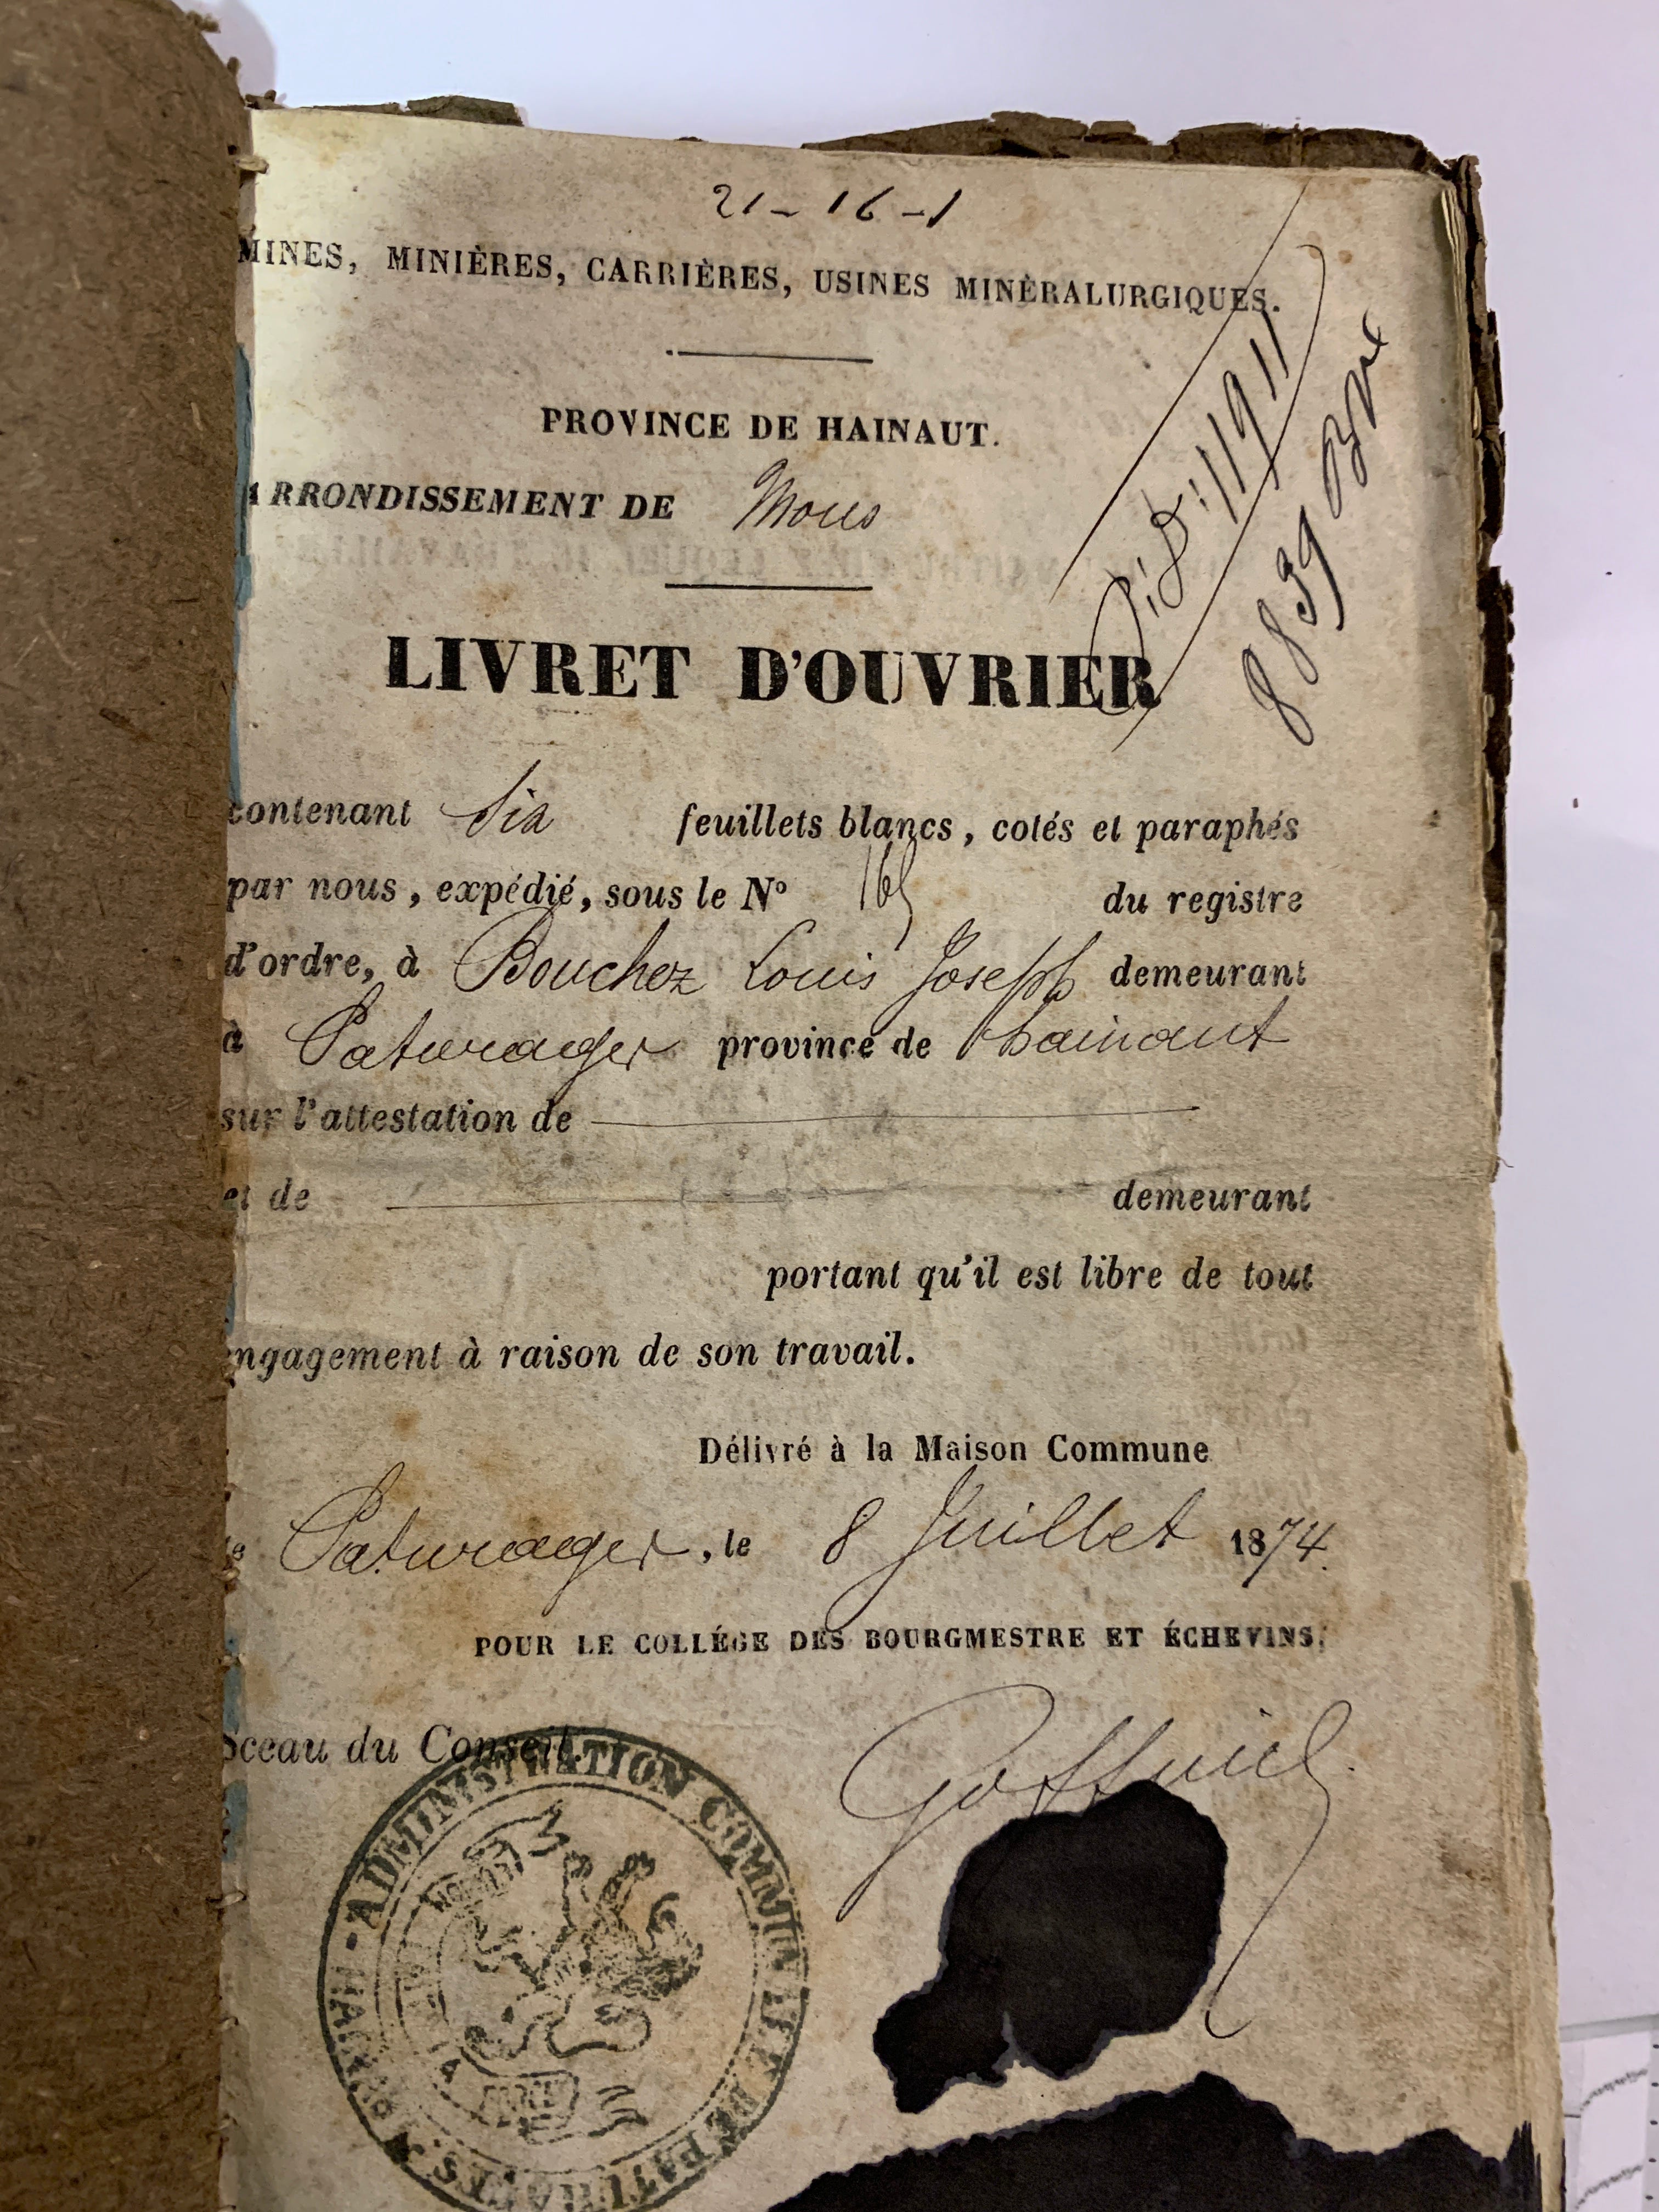 21 - 16 - 1
MINES, MINIÈRES, CARRIÈRES, USINES MINÉRALURGIQUES.
PROVINCE DE HAINAUT.
ARRONDISSEMENT DE Mons
LIVRET D'OUVRIER
8839
contenant Six feuillets blancs, cotés et paraphés
par nous, expédié, sous le N° 165 du registre
d'ordre, à Bouchez Louis Joseph demeurant
à Paturages province de hainaut
sur l'attestation de
et de demeurant
portant qu'il est libre de tout
engagement à raison de son travail.
Délivré à la Maison Commune
Paturages, le 8 Juillet 1874.
POUR LE COLLÉGE DES BOURGMESTRE ET ÉCHEVINS,
sceau du Conseil.
ADMINISTRATION COMMUNALE DE PATURAGES - HAINAUT